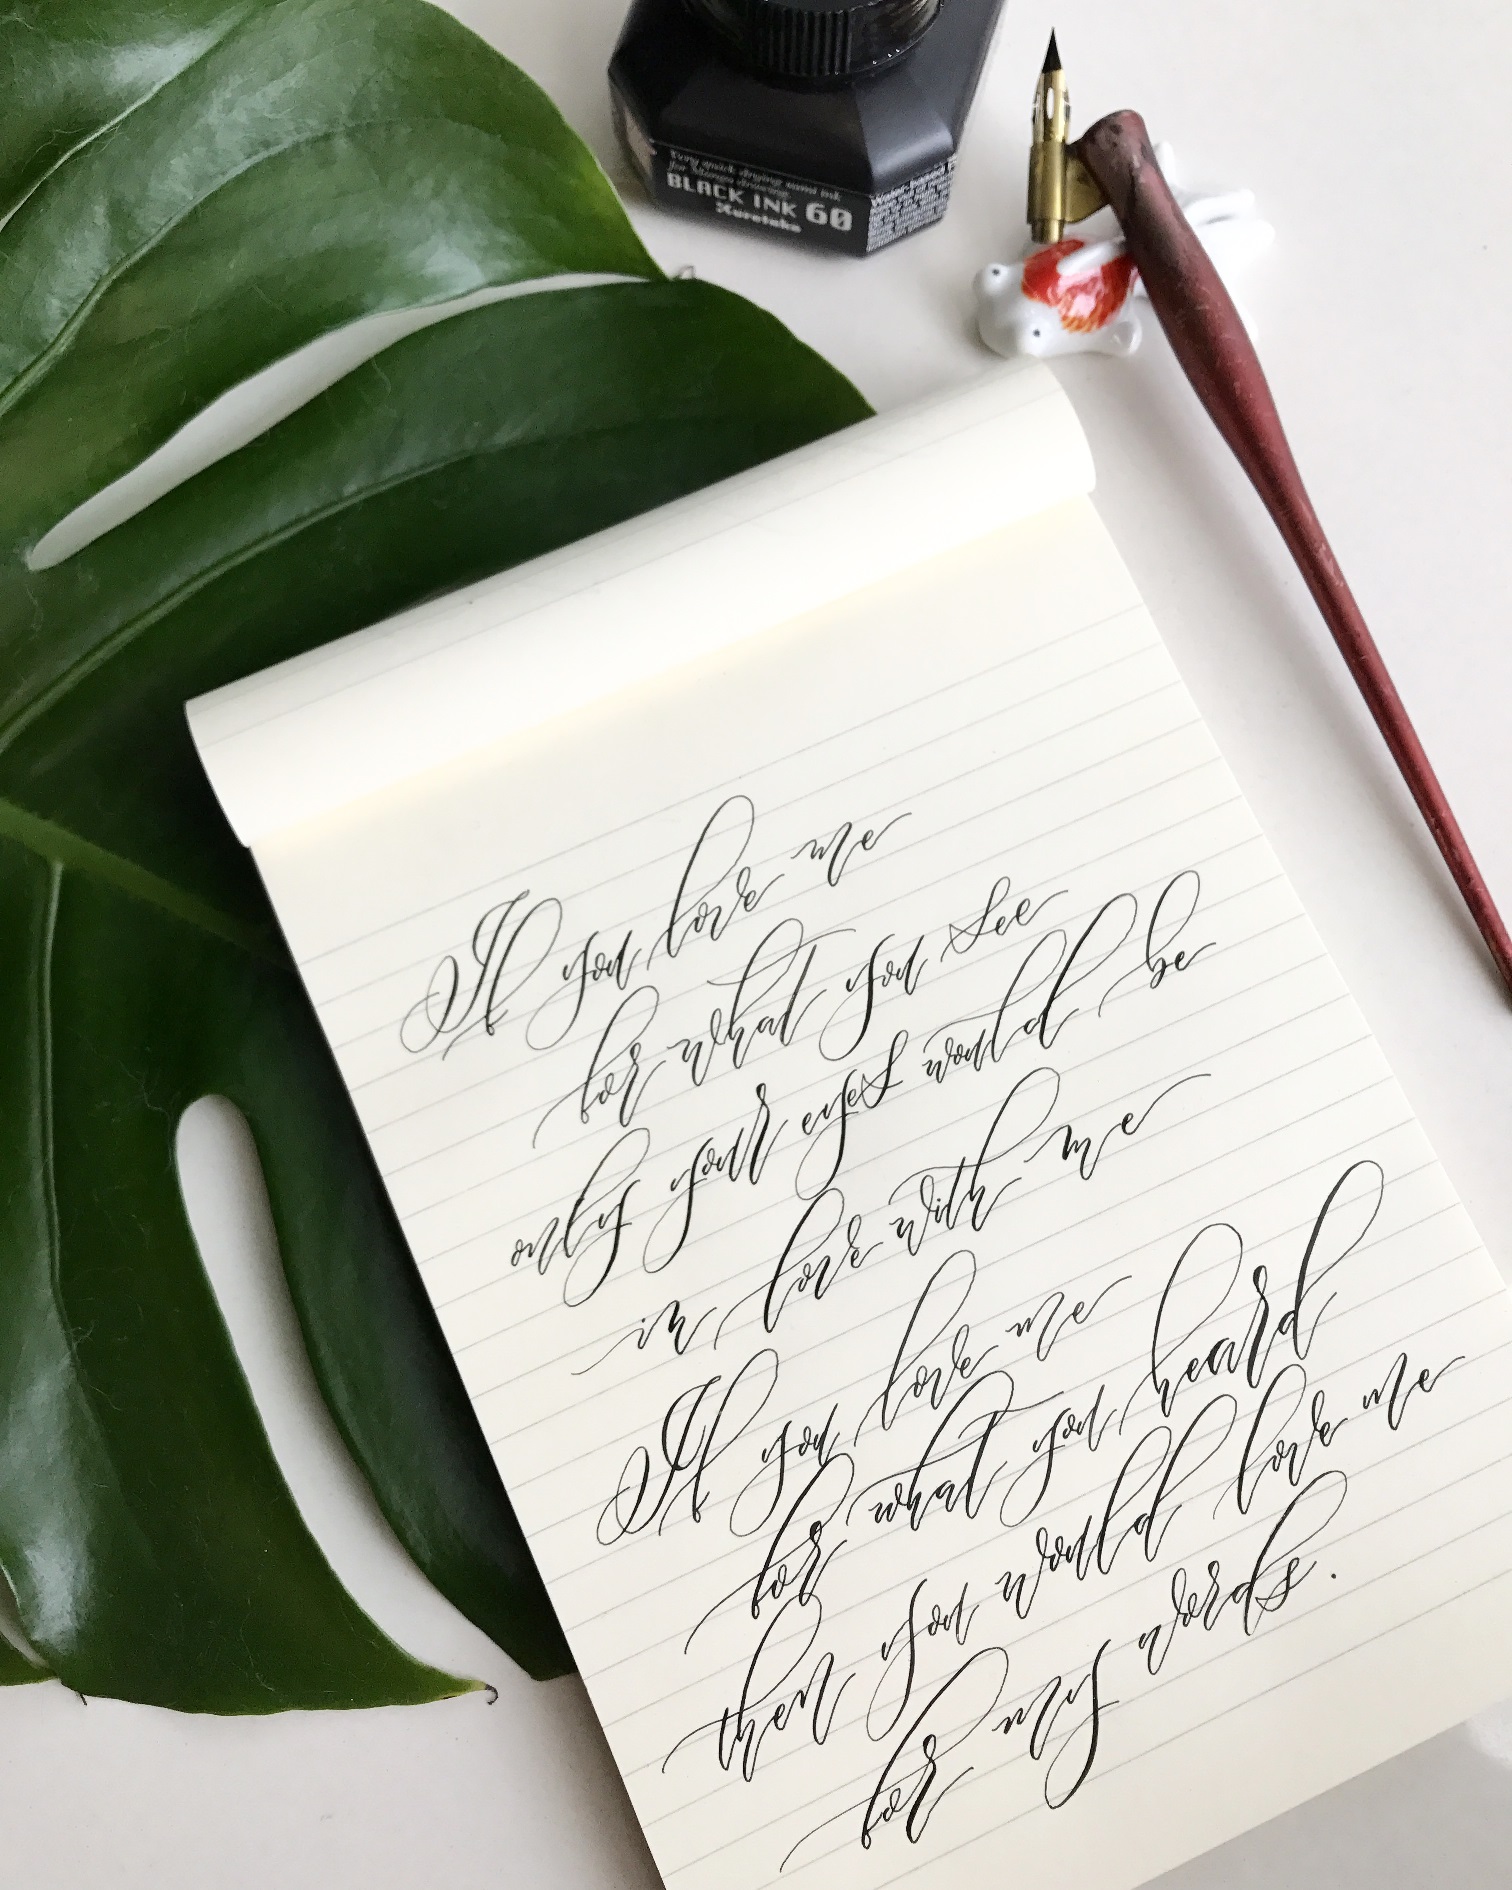 Very quick drying sumi ink
for Manga drawing
BLACK INK 60
Kuretake
If you love me
for what you see
only your eyes would be
in love with me
If you love me
for what you heard
then you would love me
for my words.